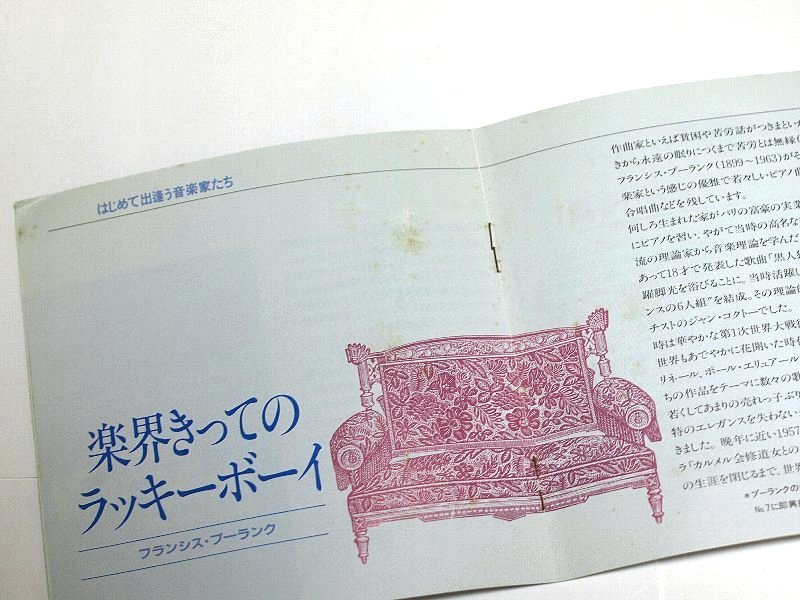 はじめて出逢う音楽家たち
楽界きっての
ラッキーボーイ
フランシス・プーランク
作曲家といえば貧困や苦労話がつきまといが
きから永遠の眠りにつくまで苦労とは無縁(
フランシス・プーランク(1899〜1963)がる
楽家という感じの優雅で若々しいピアノ曲
合唱曲などを残しています。
何しろ生まれた家がパリの富豪の実業
にピアノを習い、やがて当時の高名な
流の理論家から音楽理論を学んだ
あって18才で発表した歌曲「黒人狂
躍脚光を浴びることに。当時活躍し
ンスの6人組"を結成。その理論的
チストのジャン・コクトーでした。
時は華やかな第1次世界大戦後
世界もあでやかに花開いた時代
リネール、ポール・エリュアール
ちの作品をテーマに数々の歌
若くしてあまりの売れっ子ぶり
特のエレガンスを失わない
きました。晩年に近い1957
ラ「カルメル会修道女との
の生涯を閉じるまで、世界
*プーランクの
No.7に即興